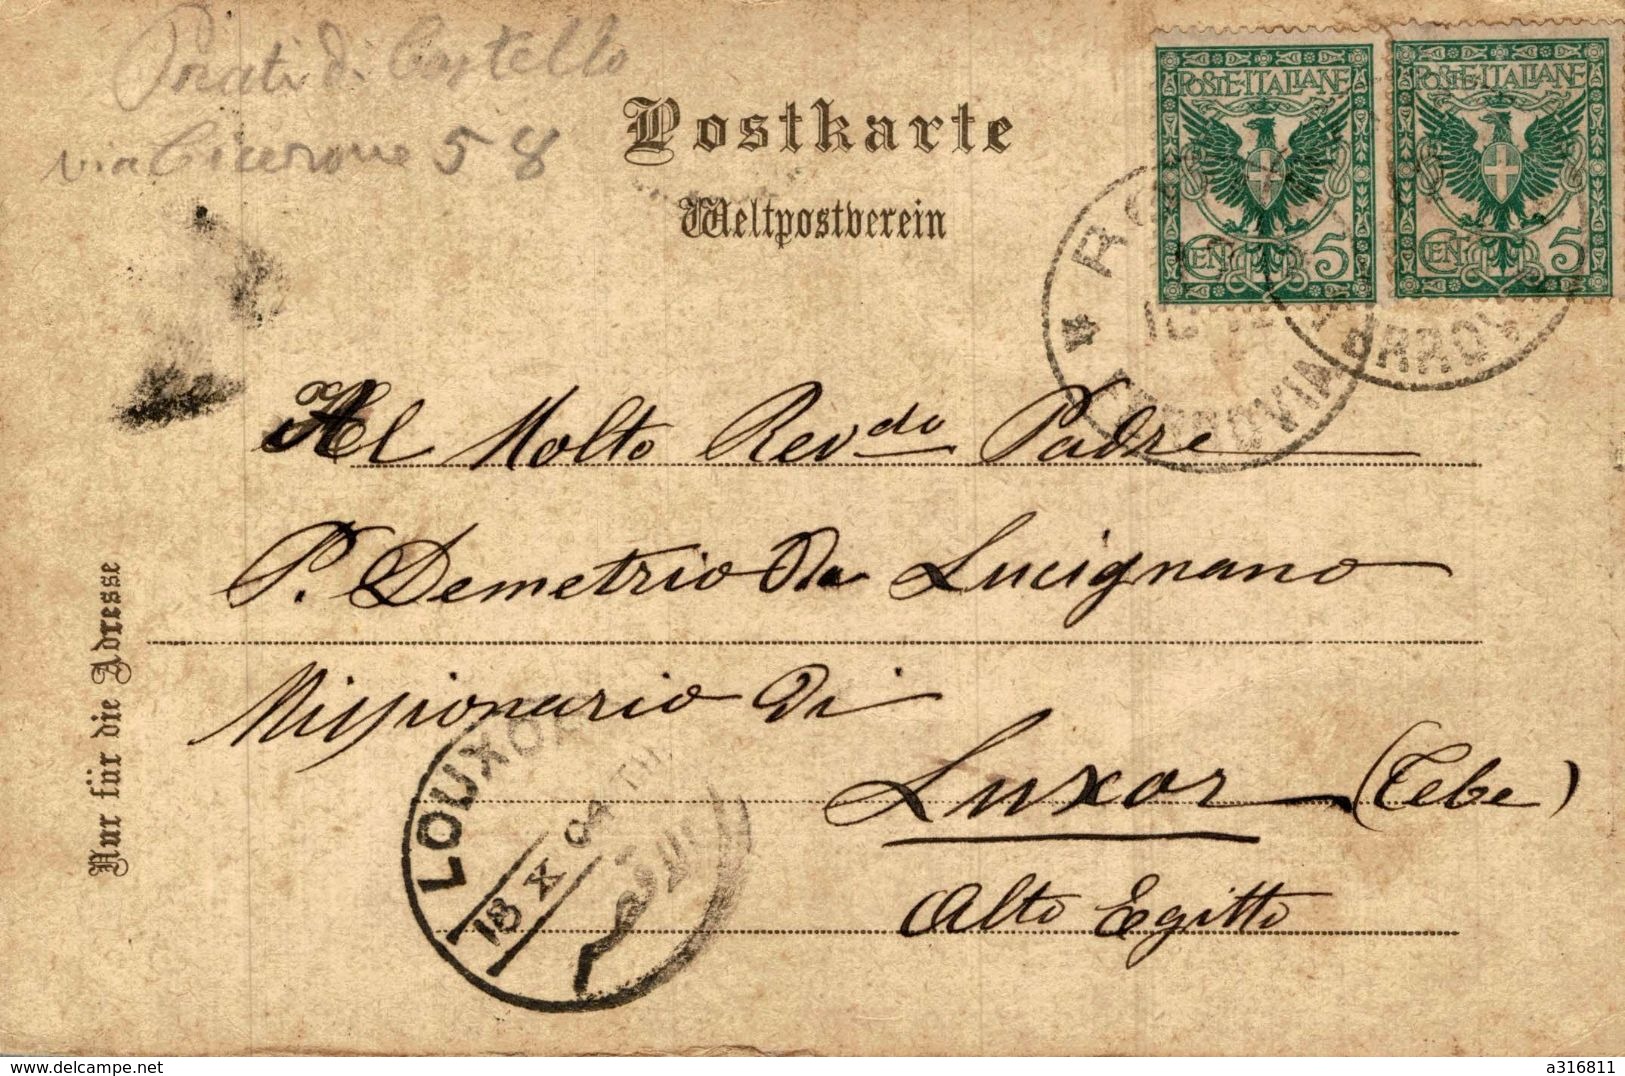 Prati di Castello
via Cicerone 58
Postkarte
Weltpostverein
POSTE·ITALIANE
CENT 5
POSTE·ITALIANE
CENT 5
FERROVIA
Al Molto Rev.do Padre
P. Demetrio da Lucignano
Missionario di
Luxor (Tebe)
Alto Egitto
Nur für die Adresse
LOUXOR
18 X 04
www.delcampe.net
a316811